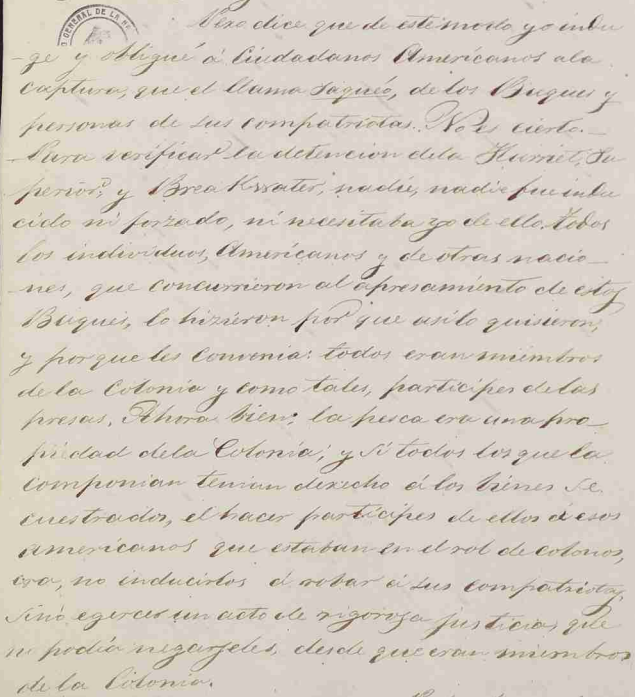 GENERAL DE LA
Pero dice que de este modo yo indu
-ge y obligué á Ciudadanos Américanos ala
captura, que el llama saquéo, de los Buques y
personas de sus compatriotas. No es cierto.–
Para verificar la detencion dela Harriet, Su
perior, y BreaKwater, nadie, nadie fue indu
cido ni forzado, ni necesitaba yo de ello. todos
los individuos, Américanos y de otras nacio–
–nes, que concurrieron al apresamiento de estos
Buques, lo hizieron por que asi lo quisieron,
y porque les convenia: todos eran miembros
de la Colonia y como tales, participes de las
presas. Ahora bien; la pesca era una pro–
piedad dela Colonia; y si todos los que la
componian tenian derecho á los biénes se
cuestrados, el hacer participes de ellos á esos
américanos que estaban en el rol de colonos,
era, no inducirlos á robar á sus compatriotas,
sinó egercer un acto de rigorosa justicia que
no podia negarseles, desde que eran miembros
de la Colonia.